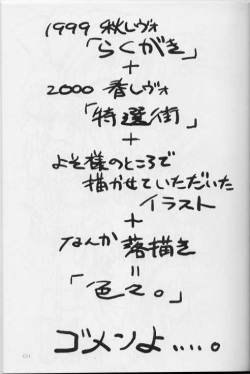 1999 秋レヴォ
「らくがき」
+
2000 春レヴォ
「特選街」
+
よそ様のところで
描かせていただいた
イラスト
+
なんか落描き
=
「色々。」
ゴメンよ....。